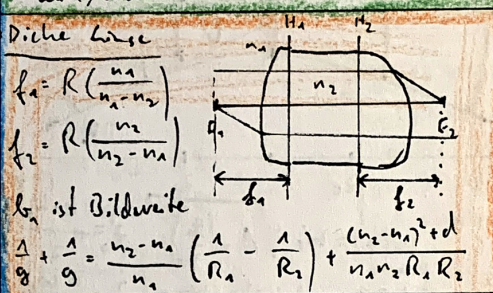 Dicke Linse
f₁ = R (n₁ / (n₁ - n₂))
f₂ = R (n₂ / (n₂ - n₁))
b₁ ist Bildweite
1/g + 1/g = (n₂ - n₁)/n₁ (1/R₁ - 1/R₂) + ((n₂ - n₁)² + d)/(n₁ n₂ R₁ R₂)
H₁ H₂
n₁
n₂
F₁ F₂
f₁ f₂